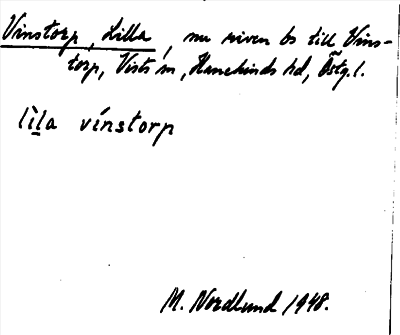 Vinstorp, Lilla, nu riven bs till Vins-
torp, Vists sn, Hanekinds hd, Östg.l.
lìla vínstorp
M. Nordlund 1948.